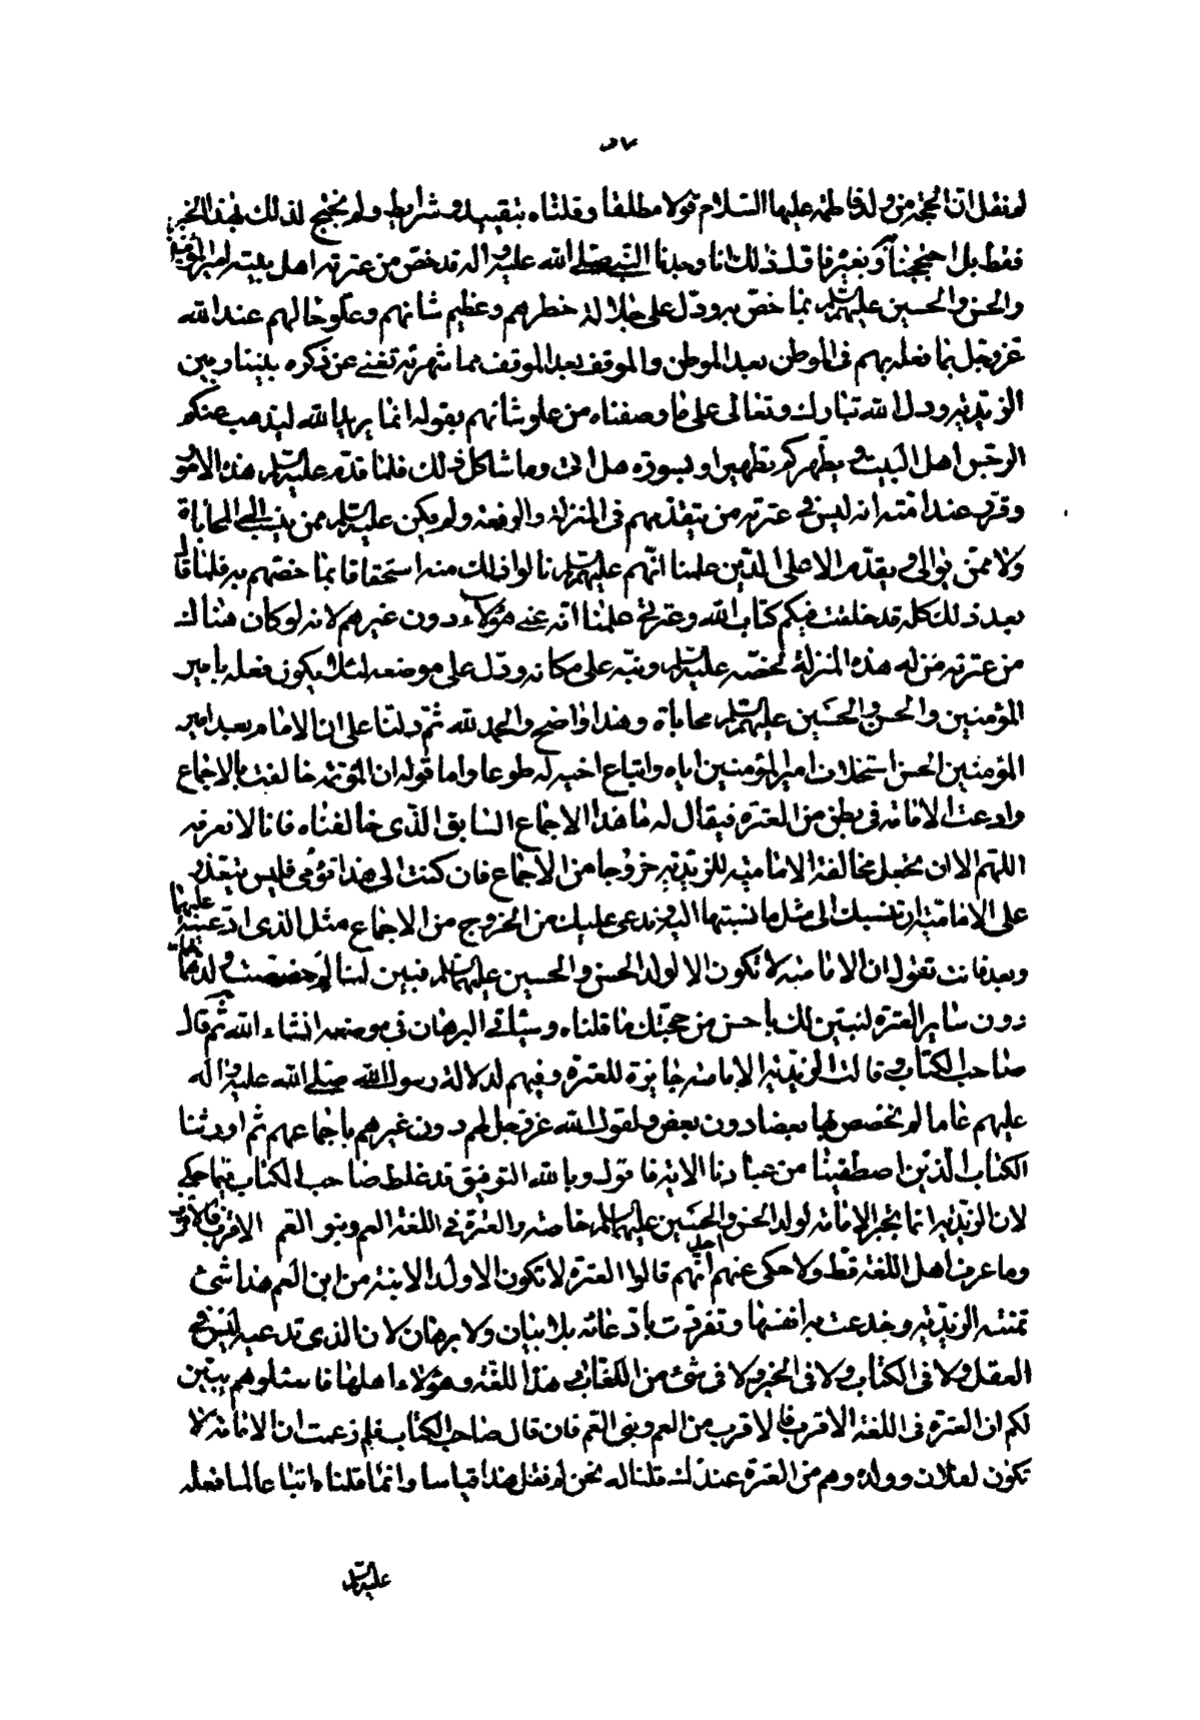 لم نقل ان الحجة من ولد فاطمة عليها السلام قولا مطلقا وقلناه بتقييد وشرايط ولم نحتج لذلك بهذا الخبر
فقط بل احتججنا به وبغيره فاول ذلك انا وجدنا النبي صلى الله عليه واله قد خص من عترته اهل بيته امير المؤمنين
والحسن والحسين عليهم السلم بما خص به ودل على جلالة خطرهم وعظيم شانهم وعلو حالهم عند الله
عز وجل بما فعله بهم في الموطن بعد الموطن والموقف بعد الموقف مما شهرته تغني عن ذكره بيننا وبين
الزيدية ودل الله تبارك وتعالى على ما وصفناه من علو شانهم بقوله انما يريد الله ليذهب عنكم
الرجس اهل البيت و يطهركم تطهيرا وبسورة هل اتى وما شاكل ذلك فلما قدم عليه السلم هذه الامور
وقرر عند امته انه ليس في عترته من يتقدمهم في المنزلة والرفعة ولم يكن عليه السلم ممن ينسب الى المحاباة
ولا ممن يوالي ويقدم الا على الدين علمنا انهم عليهم السلم نالوا ذلك منه استحقاقا بما خصهم به فلما قال
بعد ذلك كله قد خلفت فيكم كتاب الله وعترتي علمنا انه عنى هؤلاء دون غيرهم لانه لو كان هناك
من عترته من له هذه المنزلة لخصه عليه السلم ونبه على مكانه ودل على موضعه لئلا يكون فعله بامير
المؤمنين والحسن والحسين عليهم السلم محاباة وهذا واضح والحمد لله ثم دلنا على ان الامام بعد امير
المؤمنين الحسن استخلاف امير المؤمنين اياه واتباع اخيه له طوعا واما قوله ان المؤتمة خالفت بالاجماع
وادعت الامامة في بطن من العترة فيقال له ما هذا الاجماع السابق الذي خالفناه فانا لا نعرفه
اللهم الا ان تجعل مخالفة الامامية للزيدية خروجا من الاجماع فان كنت الى هذا تؤمى فليس يتعذر
على الامامية ان تنسبك الى مثل ما نسبتها اليه وتدعى عليك من الخروج من الاجماع مثل الذي ادعيته عليها
وبعد فانت تقول ان الامامة لا تكون الا لولد الحسن والحسين عليهما السلم فبين لنا لم خصصت ولدهما
دون ساير العترة لنبين لك باحسن من حجتك ما قلناه وسياتي البرهان في موضعه انشاء الله ثم قال
صاحب الكتاب وقالت الزيدية الامامة جايزة للعترة وفيهم لدلالة رسول الله صلى الله عليه واله
عليهم عاما لم يخصص بها بعضا دون بعض ولقول الله عز وجل لهم دون غيرهم باجماعهم ثم اورثنا
الكتاب الذين اصطفينا من عبادنا الاية فاقول وبالله التوفيق قد غلط صاحب الكتاب فيما حكى
لان الزيدية انما تجيز الامامة لولد الحسن والحسين عليهما السلم خاصة والعترة في اللغة العم وبنو العم الاقرب فالاقرب
وما عرف اهل اللغة قط ولا حكى عنهم احد انهم قالوا العترة لا تكون الا ولد الابنة من ابن العم هذا شئ
تمنته الزيدية وخدعت به انفسها وتفردت بادعائه بلا بيان ولا برهان لان الذي تدعيه ليس في
العقل ولا في الكتاب ولا في الخبر ولا في شئ من اللغات و هذه اللغة وهؤلاء اهلها فاسئلوهم يبين
لكم ان العترة في اللغة الاقرب فالاقرب من العم وبني العم فان قال صاحب الكتاب فلم زعمت ان الامامة لا
تكون لفلان وولده وهم من العترة عندك قلنا له نحن لم نقل هذا قياسا وانما قلناه اتباعا لما فعله
عليه السلم